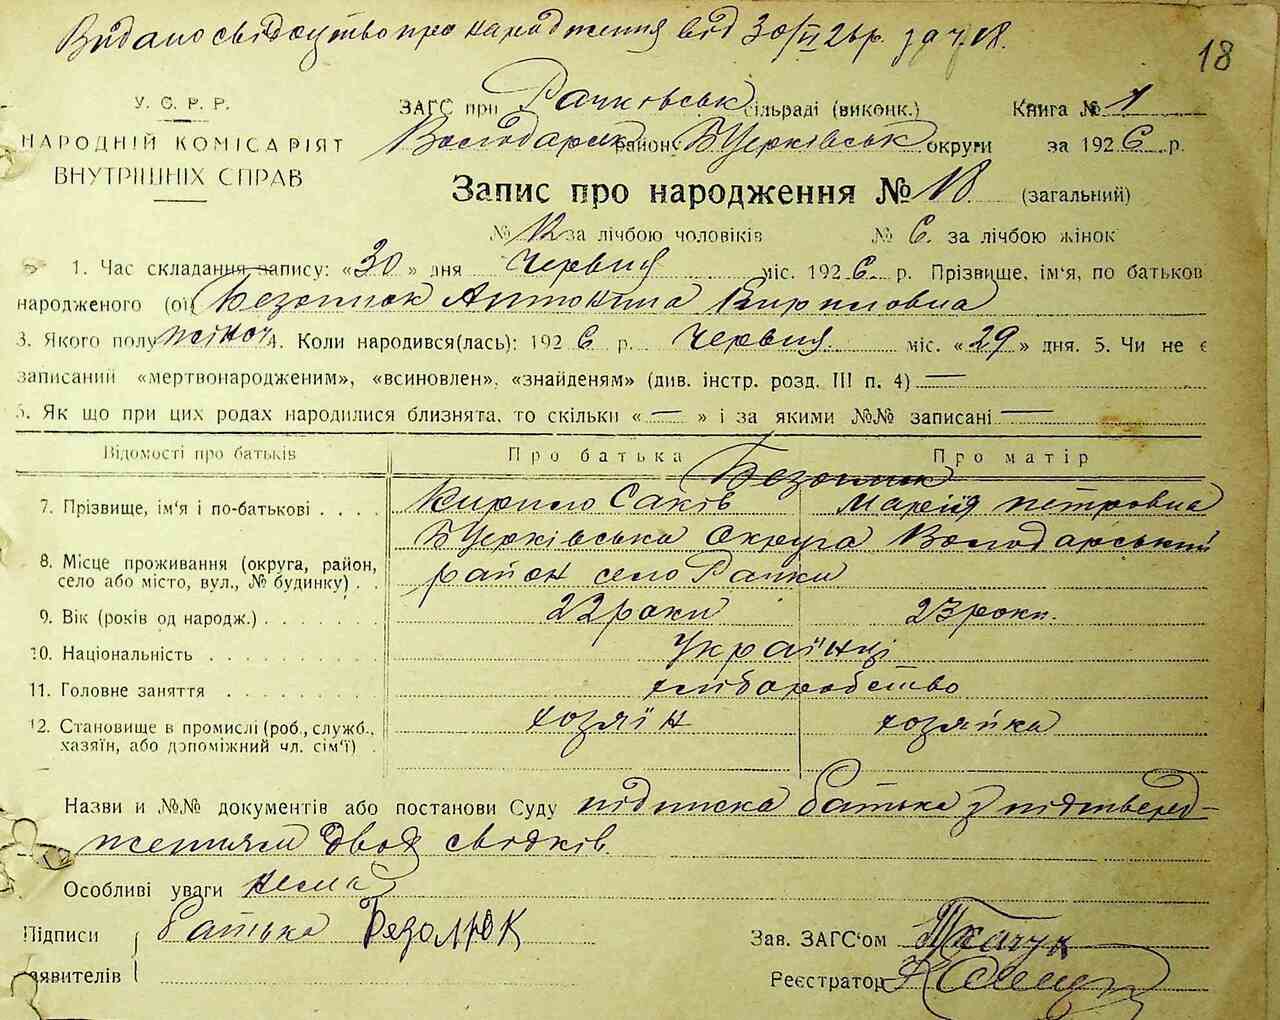 Видано свідоцтво про народження від 30/VI 26 р. за ч. 18.
18
У. С. Р. Р.
НАРОДНІЙ КОМІСАРІЯТ
ВНУТРІШНІХ СПРАВ
ЗАГС при Рачківськ сільраді (виконк.) Книга № 1
Володарськ району БЦерківськ округи за 1926 р.
Запис про народження № 18. (загальний)
№ 12 за лічбою чоловіків № 6. за лічбою жінок
1. Час складання запису: «30» дня Червня міс. 1926. р. Прізвище, ім'я, по батькові
народженого (ої) Безолюк Антонина Кириловна
3. Якого полу жіноч 4. Коли народився(лась): 1926 р. Червня. міс. «29» дня. 5. Чи не є
записаний «мертвонародженим», «всиновлен», «знайденям» (див. інстр. розд. III п. 4) —
6. Як що при цих родах народилися близнята, то скільки « — » і за якими №№ записані —
Відомості про батьків Про батька Про матір
Безолюк
7. Прізвище, ім'я і по-батькові . . . . Кирило Саків Марія Петровна
8. Місце проживання (округа, район, БЦерківська Округа Володарський
село або місто, вул., № будинку) . . район село Рачки
9. Вік (років од народж.) . . . . . . . 22 роки 23 роки.
10. Національність . . . . . . . . . . Українці
11. Головне заняття . . . . . . . . хліборобство
12. Становище в промислі (роб., служб., хозяїн хозяйка
хазяїн, або допоміжний чл. сім'ї) .
Назви и №№ документів або постанови Суду підписка батька з підтверд-
женням двох свідків.
Особливі уваги нема
Підписи батька Безолюк Зав. ЗАГС'ом Ткачук
заявителів Реєстратор